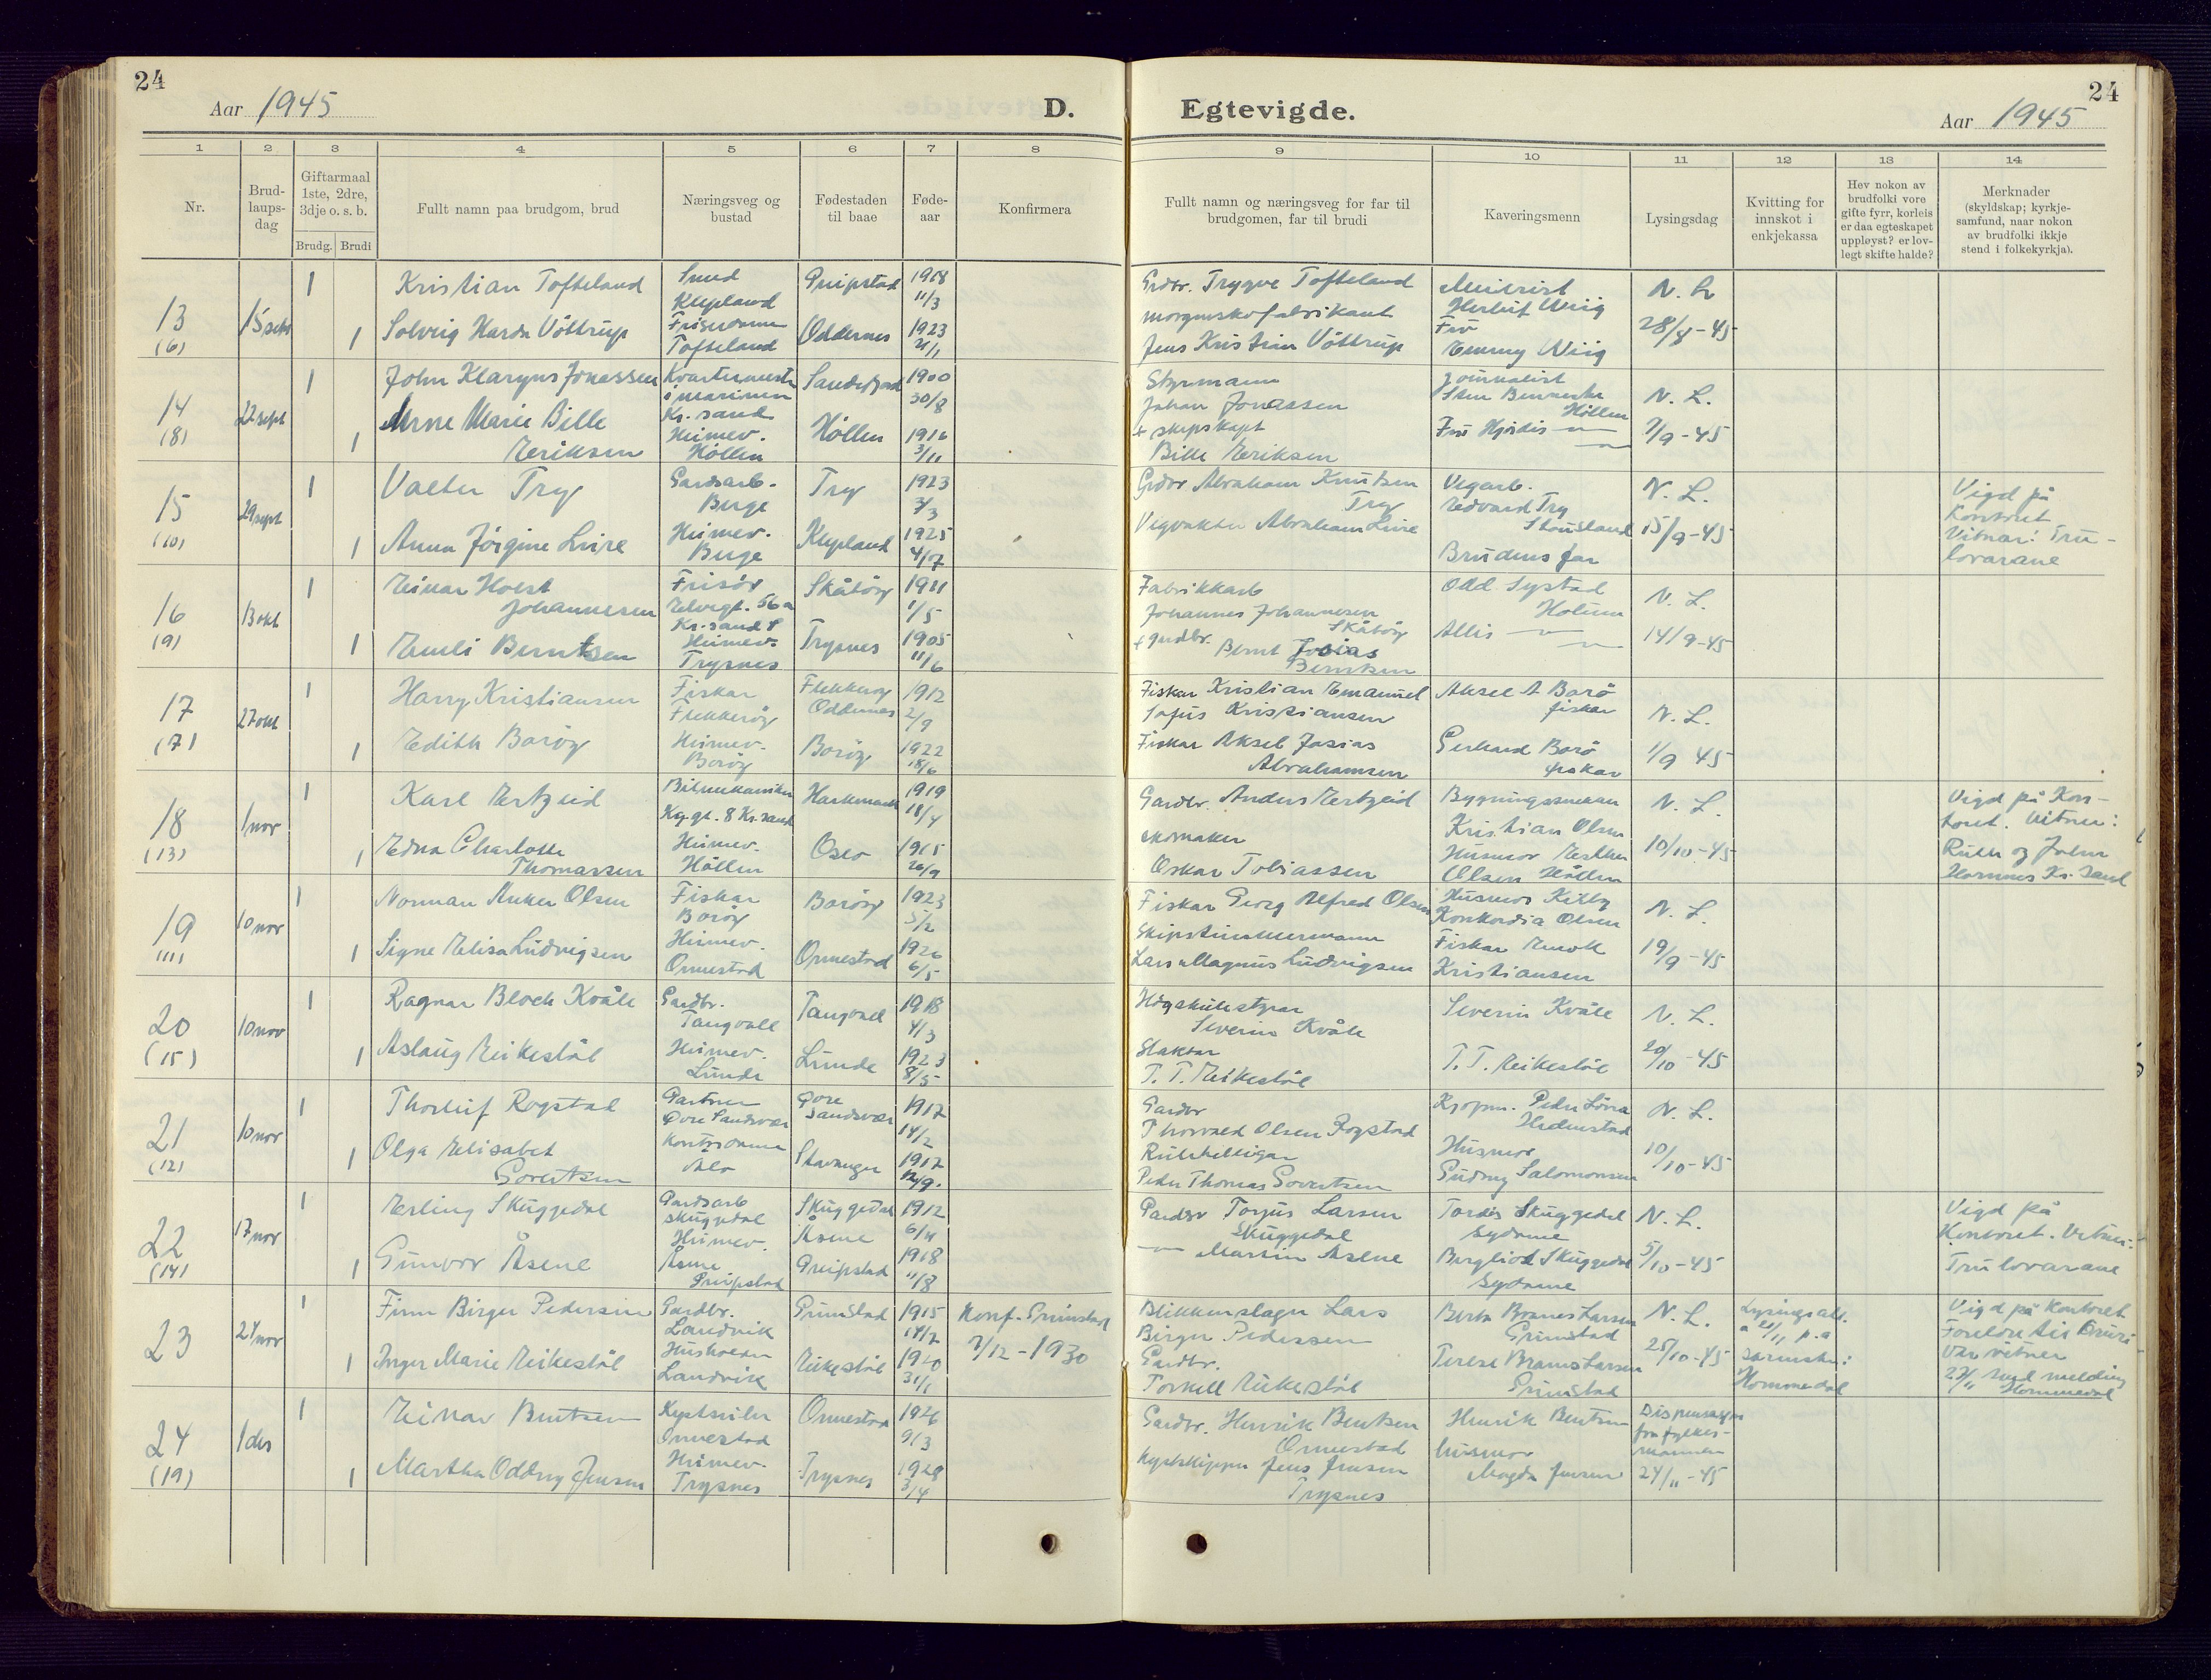 24
Aar 1945
D.
Egtevigde.
24
Aar 1945
1 2 3 4 5 6 7 8
9 10 11 12 13 14
Nr.
Brud-
laups-
dag
Giftarmaal
1ste, 2dre,
3dje o. s. b.
Brudg. Brudi
Fullt namn paa brudgom, brud
Næringsveg og
bustad
Fødestaden
til baae
Føde-
aar
Konfirmera
Fullt namn og næringsveg for far til
brudgomen, far til brudi
Kaveringsmenn
Lysingsdag
Kvitting for
innskot i
enkjekassa
Hev nokon av
brudfolki vore
gifte fyrr, korleis
er daa egteskapet
uppløyst? er lov-
legt skifte halde?
Merknader
(skyldskap; kyrkje-
samfund, naar nokon
av brudfolki ikkje
stend i folkekyrkja).
13
(6)
15 sept
1
1
Kristian Tofteland
Solveig Harda Vöttrup
Smed
Klepland
Tofteland
Greipstad
Oddernes
1918
11/3
1923
21/1
Grdbr. Trygve Tofteland
morgenskofabrikant
Jens Kristian Vöttrup
Herleif Wiig
Fru
Emmy Wiig
N. L.
28/8-45
14
(8)
22 sept
1
1
John Klaryus Jonassen
Anne Marie Bille
Eriksen
i marinen
Kr. sand
Heimev.
Höllen
Sandefjord
Höllen
1900
30/8
1916
3/11
Styrmann
Johan Jonassen
+ skipskapt
Bille Eriksen
Journalist
Höllen
Fru Hjördis
N. L.
7/9-45
15
(10)
29 sept
1
1
Valter Try
Anna Jörgine Lvire
Gardsarb.
Berge
Heimev.
Berge
Try
Klepland
1923
3/3
1925
4/7
Grdbr Abraham Knutsen
Try
Vegvaktar Abraham Lvire
Vegarb.
Edvard Try
Stousland
Brudens far
N. L.
15/9-45
Vigd på
Kontoret
Vitnar: Tru-
lovarane
16
(9)
13 okt
1
1
Einar Holst
Johannesen
Emeli Berntsen
Frisör
Elvegt. 56a
Kr. sand S
Heimev.
Trysnes
Skåtöy
Trysnes
1911
1/5
1905
11/6
Fabrikkarb
Johannes Johannesen
Skåtöy
+ gardbr. Bernt Josias
Berntsen
Odd Systad
Holum
Allis
N. L.
14/9-45
17
(7)
27 okt
1
1
Harry Kristiansen
Edith Boröy
Fiskar
Flekkeröy
Heimev.
Boröy
Flekkeröy
Oddernes
Boröy
1912
2/9
1922
18/6
Fiskar Kristian Emanuel
Sofus Kristiansen
Fiskar Aksel Josias
Abrahamsen
Aksel A Borö
fiskar
Gerhard Borö
fiskar
N. L.
1/9 45
18
(13)
1 nov
1
1
Karl Ertzeid
Edna Charlotte
Thomassen
Bilmekaniker
Kg. gt. 8 Kr. sand
Heimev.
Höllen
Harkmark
Oslo
1919
18/4
1915
26/9
Gardbr. Anders Ertzeid
skomaker
Oskar Tobiassen
Bygningssnekker
Kristian Olsen
Husmor Esther
Olsen Höllen
N. L.
10/10-45
Vigd på Kon-
toret. Vitner:
Ruth og John
Hornnes Kr. sand
19
(11)
10 nov
1
1
Norman Anker Olsen
Signe Elisa Ludvigsen
Fiskar
Boröy
Heimev.
Ormestad
Boröy
Ormestad
1923
5/2
1926
6/5
Fiskar Georg Alfred Olsen
Skipstimmermann
Lars Magnus Ludvigsen
Husmor Kitty
Konkordia Olsen
Fiskar Enok
Kristiansen
N. L.
19/9-45
20
(15)
10 nov
1
1
Ragnar Bloch Kvåle
Aslaug Eikestöl
Gardbr.
Tangvall
Heimev.
Lunde
Tangvall
Lunde
1918
4/3
1923
8/5
Högskulestyrar
Severin Kvåle
Slaktar
T. T. Eikestöl
Severin Kvåle
T. T. Eikestöl
N. L.
20/10-45
21
(12)
10 nov
1
1
Thorleif Rogstad
Olga Elisabet
Govertsen
Gartner
Övre Sandsvær
Kontordame
Övre
Sandsvær
Stavanger
1917
14/2
1917
12/9.
Gardbr
Thorvald Olsen Rogstad
Rutebilleigar
Peder Thomas Govertsen
Kjöpm. Peder
Husmor
Gudny Salomonsen
N. L.
10/10-45
22
(14)
17 nov
1
1
Erling Skuggedal
Gunvor Åsene
Gardsarb
Skuggedal
Heimev.
Åsene
Greipstad
Skuggedal
Åsene
Greipstad
1912
6/11
1918
11/8
Gardbr Torjus Larsen
Skuggedal
Martin Åsene
Tordis Skuggedal
Sydame
Bergliot Skuggedal
Sydame
N. L.
5/10-45
Vigd på
Kontoret. Vitner:
Trulovarane
23
24 nov
1
1
Finn Birger Pedersen
Inger Marie Eikestöl
Gardbr.
Landvik
Landvik
Grimstad
Eikestöl
1915
14/7
1920
31/1
Konf. Grimstad
7/12-1930
Blikkenslager Lars
Birger Pedersen
Gardbr.
Torkell Eikestöl
Grimstad
Grimstad
N. L.
25/10-45
Lysingsatt.
Hommedal
Vigd på kontoret
Foreldre til
var vitner
27/11 send melding
Hommedal
24
(19)
1 des
1
1
Einar Bentsen
Martha Oddny Jensen
Ormestad
Heimev.
Trysnes
Ormestad
Trysnes
1926
9/3
1928
3/4
Gardbr. Henrik Bentsen
Ormestad
Kystskipper Jens Jensen
Trysnes
Henrik Bentsen
husmor
Magda Jensen
Dispensasjon
fra fylkes-
mannen
24/11-45